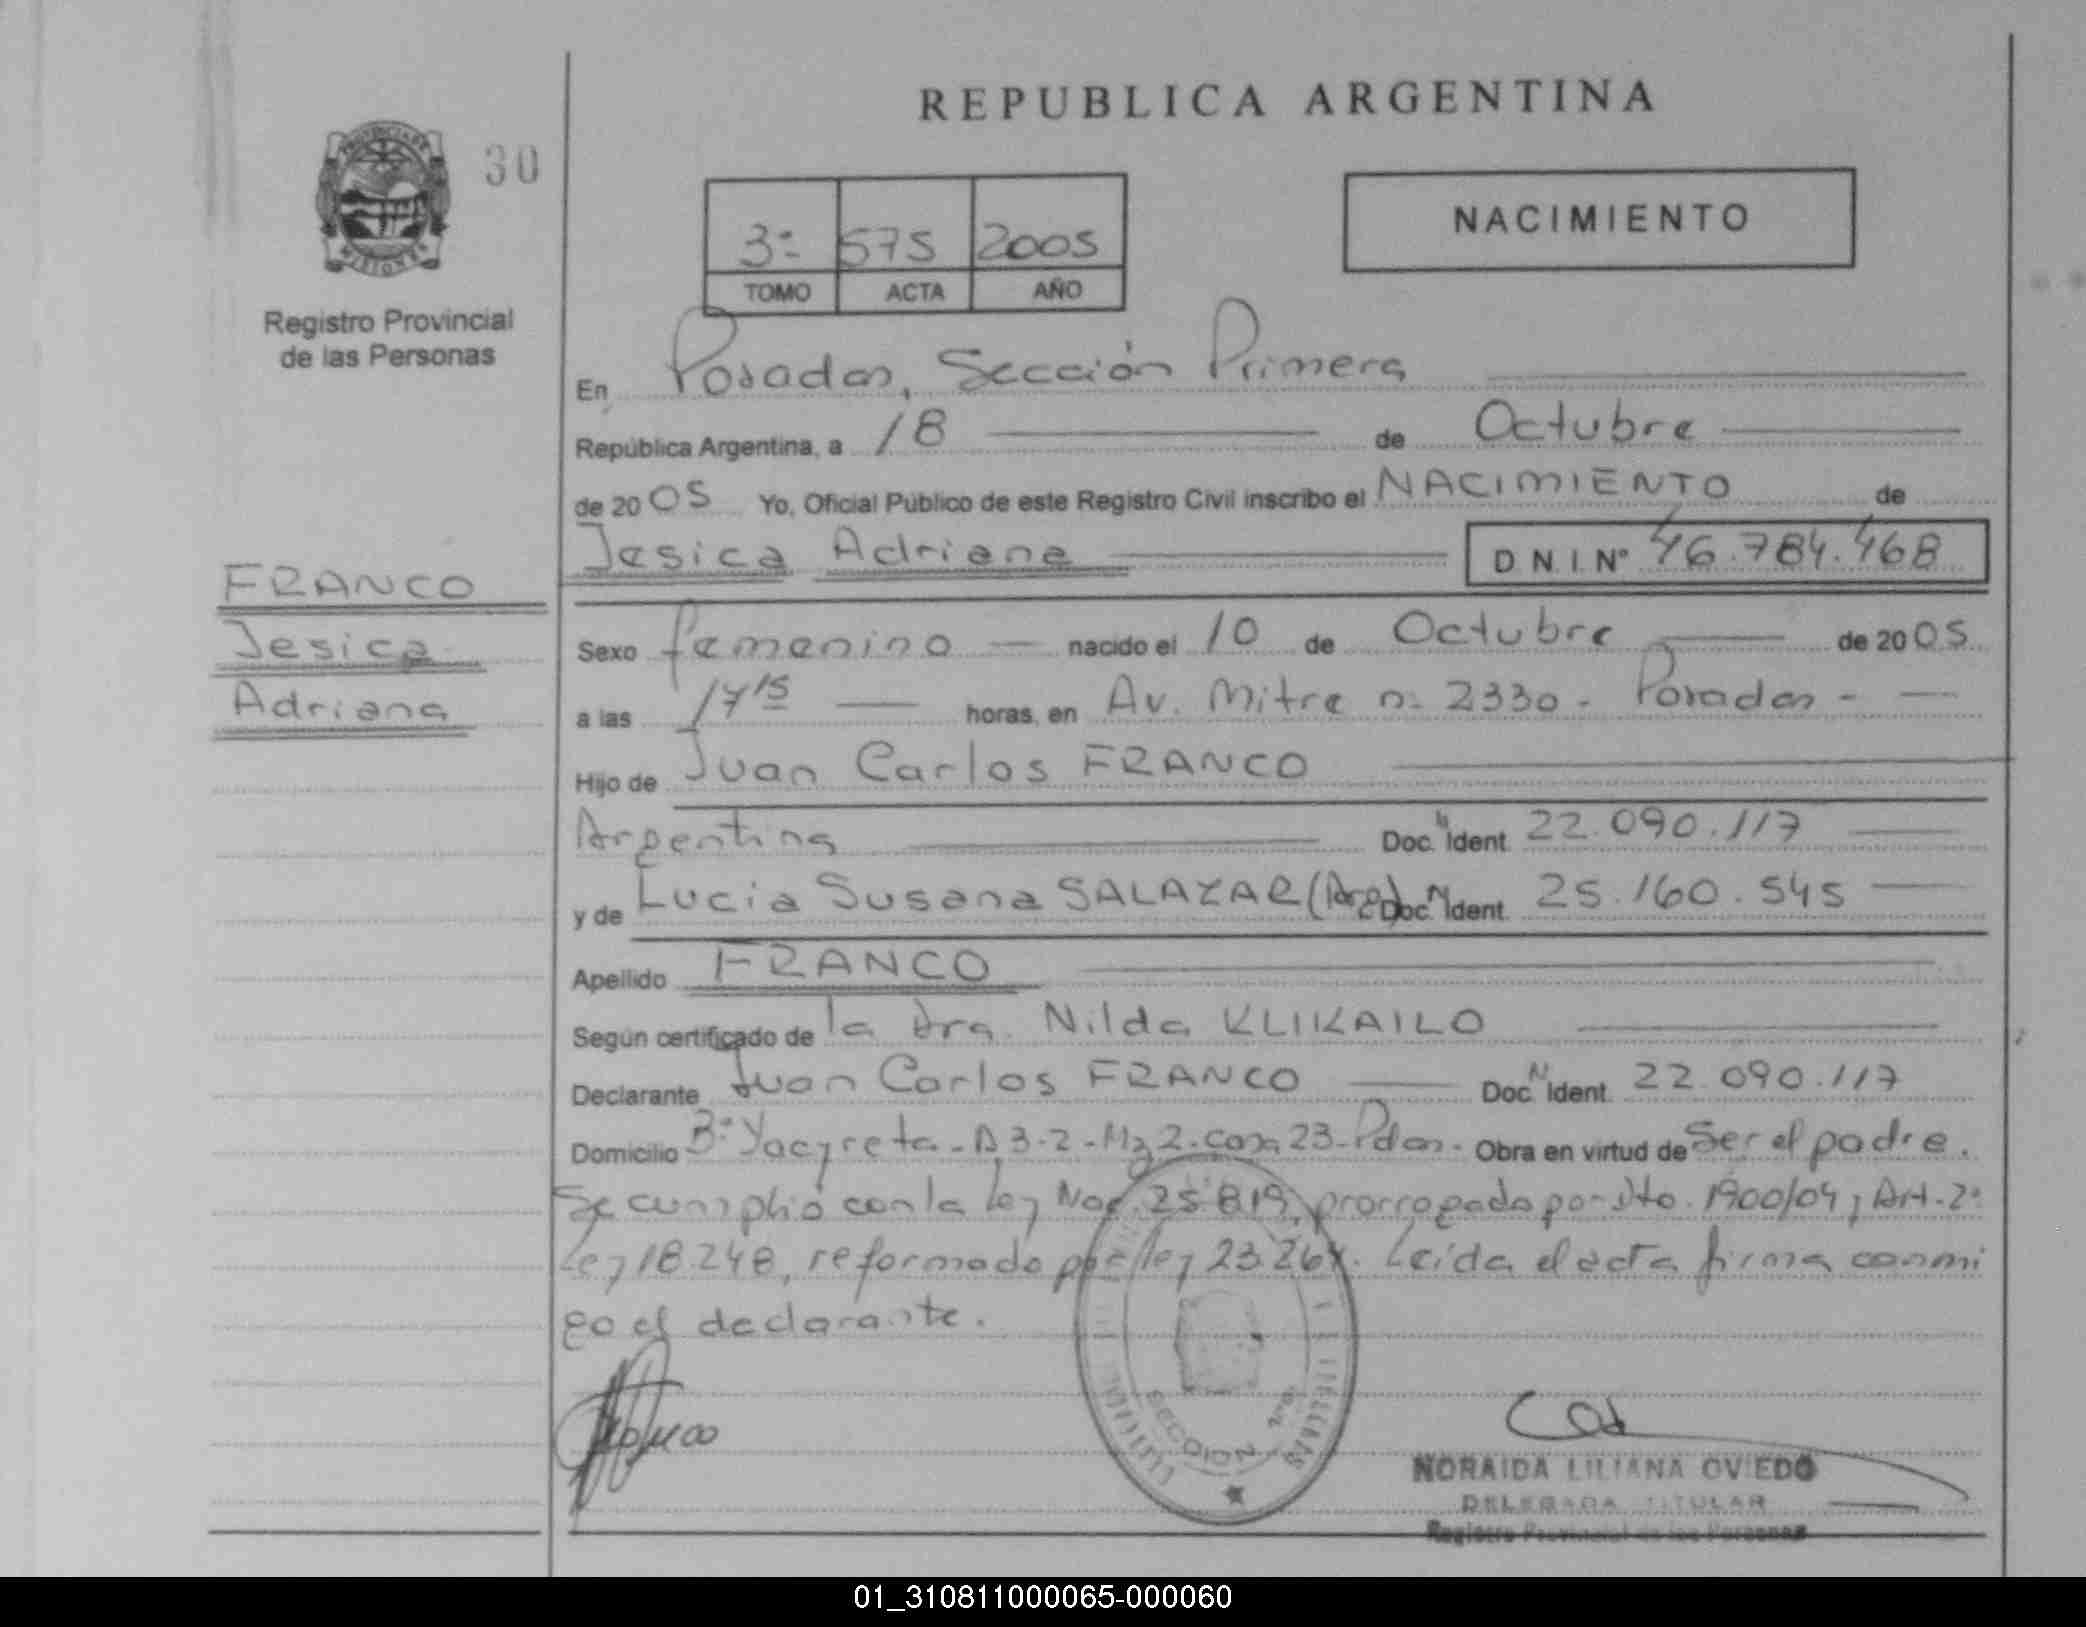 REPUBLICA ARGENTINA
30
Registro Provincial
de las Personas
3º 575 2005
TOMO ACTA AÑO
NACIMIENTO
En Posadas, Sección Primera
República Argentina, a 18 de Octubre
de 2005 Yo, Oficial Público de este Registro Civil inscribo el NACIMIENTO de
Jesica Adriana D.N.I. Nº 46.784.468
FRANCO
Jesica
Adriana
Sexo femenino nacido el 10 de Octubre de 2005
a las 17 15 horas, en Av. Mitre nº 2330 - Posadas -
Hijo de Juan Carlos FRANCO
Argentina Doc. N Ident. 22.090.117
y de Lucia Susana SALAZAR (Arg) Doc. N Ident. 25.160.545
Apellido FRANCO
Según certificado de la Dra. Nilda KLIKAILO
Declarante Juan Carlos FRANCO Doc. N Ident. 22.090.117
Domicilio Bº Yacyreta - A 3-2 - Mz 2 - casa 23 - Pdas - Obra en virtud de Ser el padre.
Se cumplió con la Ley Nac. 25.819, prorrogado por Dto. 1900/04, Art. 2º
Ley 18.248, reformado por ley 23.264. Leída el acta firma conmi
go el declarante.
SECCION
NORAIDA LILIANA OVIEDO
DELEGADA TITULAR
Registro Provincial de las Personas
01_310811000065-000060